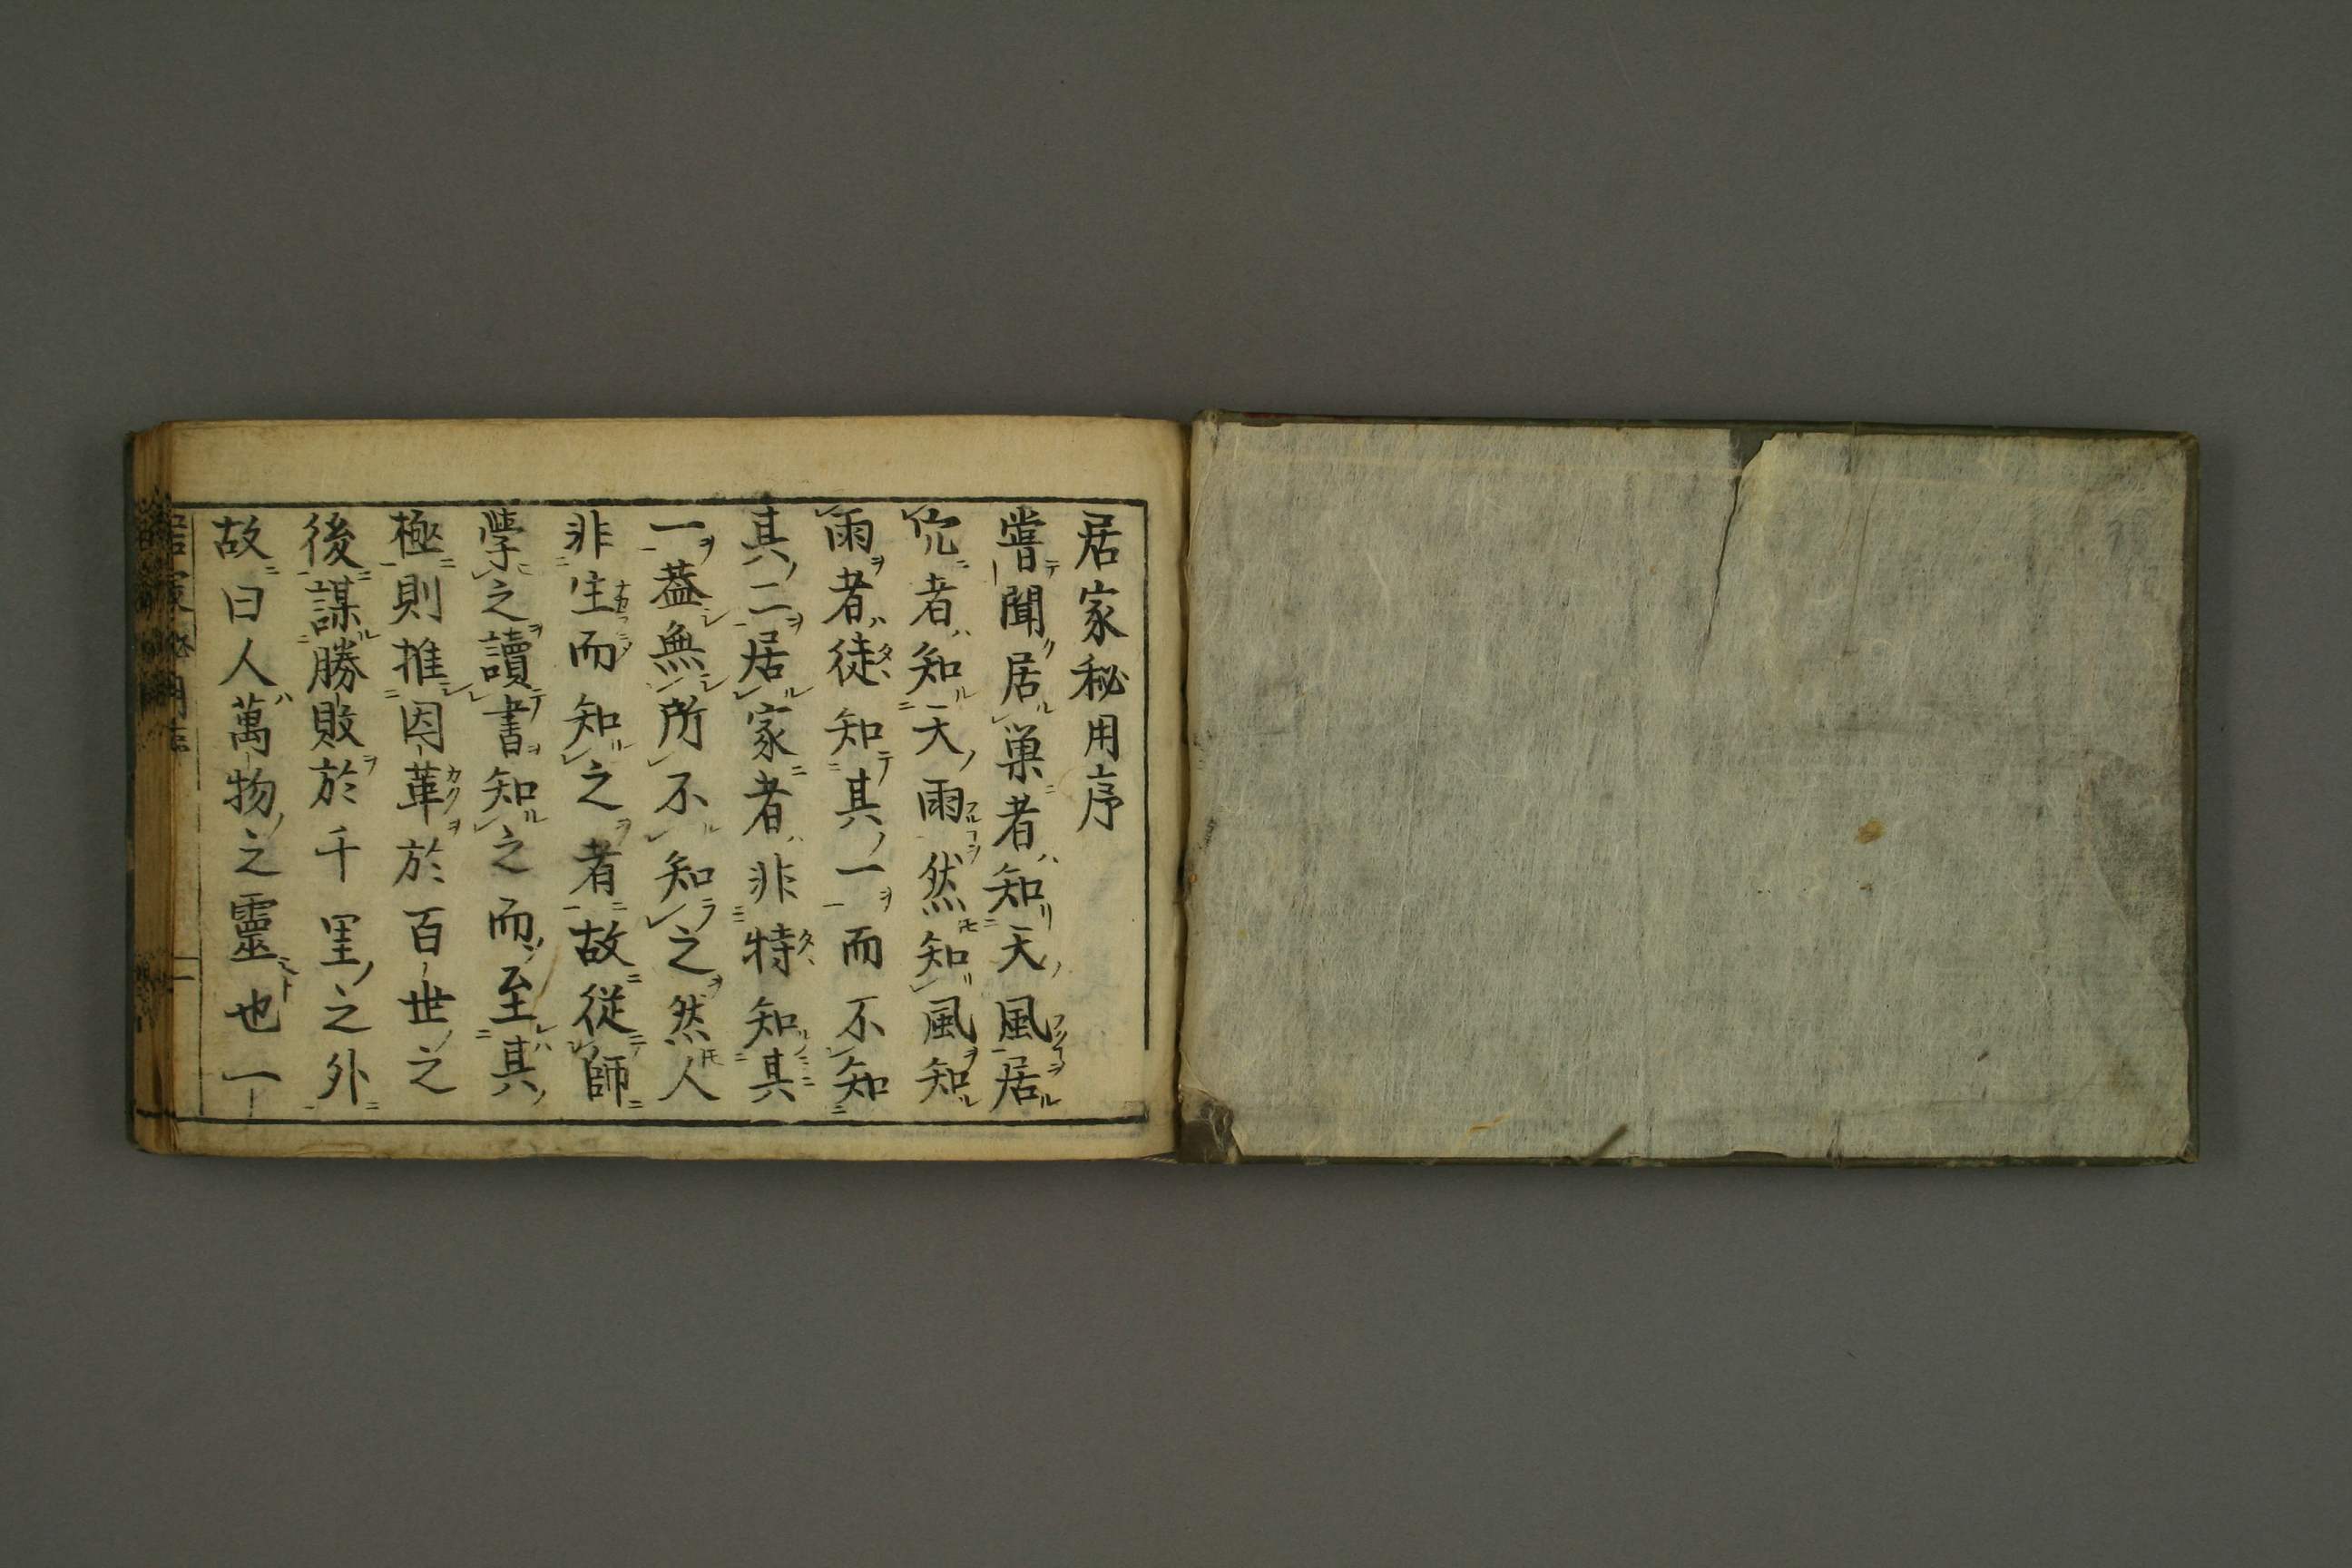 居家秘用序
嘗聞居巣者知天風居
穴者知天雨然知風知
雨者徒知其一而不知
其二居家者非特知其
一葢無所不知之然人
非生而知之者故從師
學之讀書知之而至其
極則推因革於百世之
後謀勝敗於千里之外
故曰人萬物之靈也一